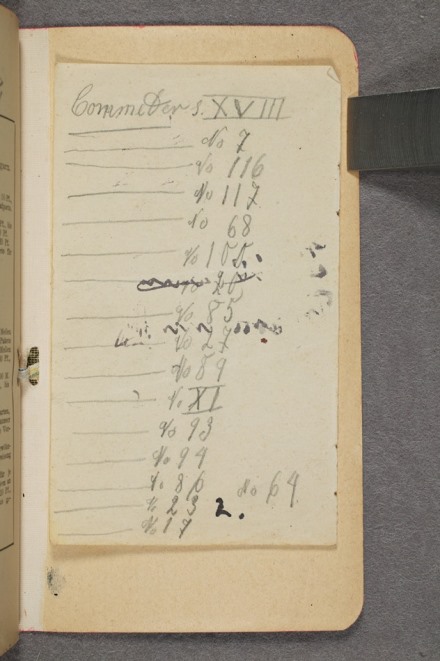 Commeders. XVIII
No 7
No 116
No 117
No 68
No 105.
No 20
No 85
No 27
No 89
No XI
No 93
No 94
No 86 No 64
No 23 2.
No 17